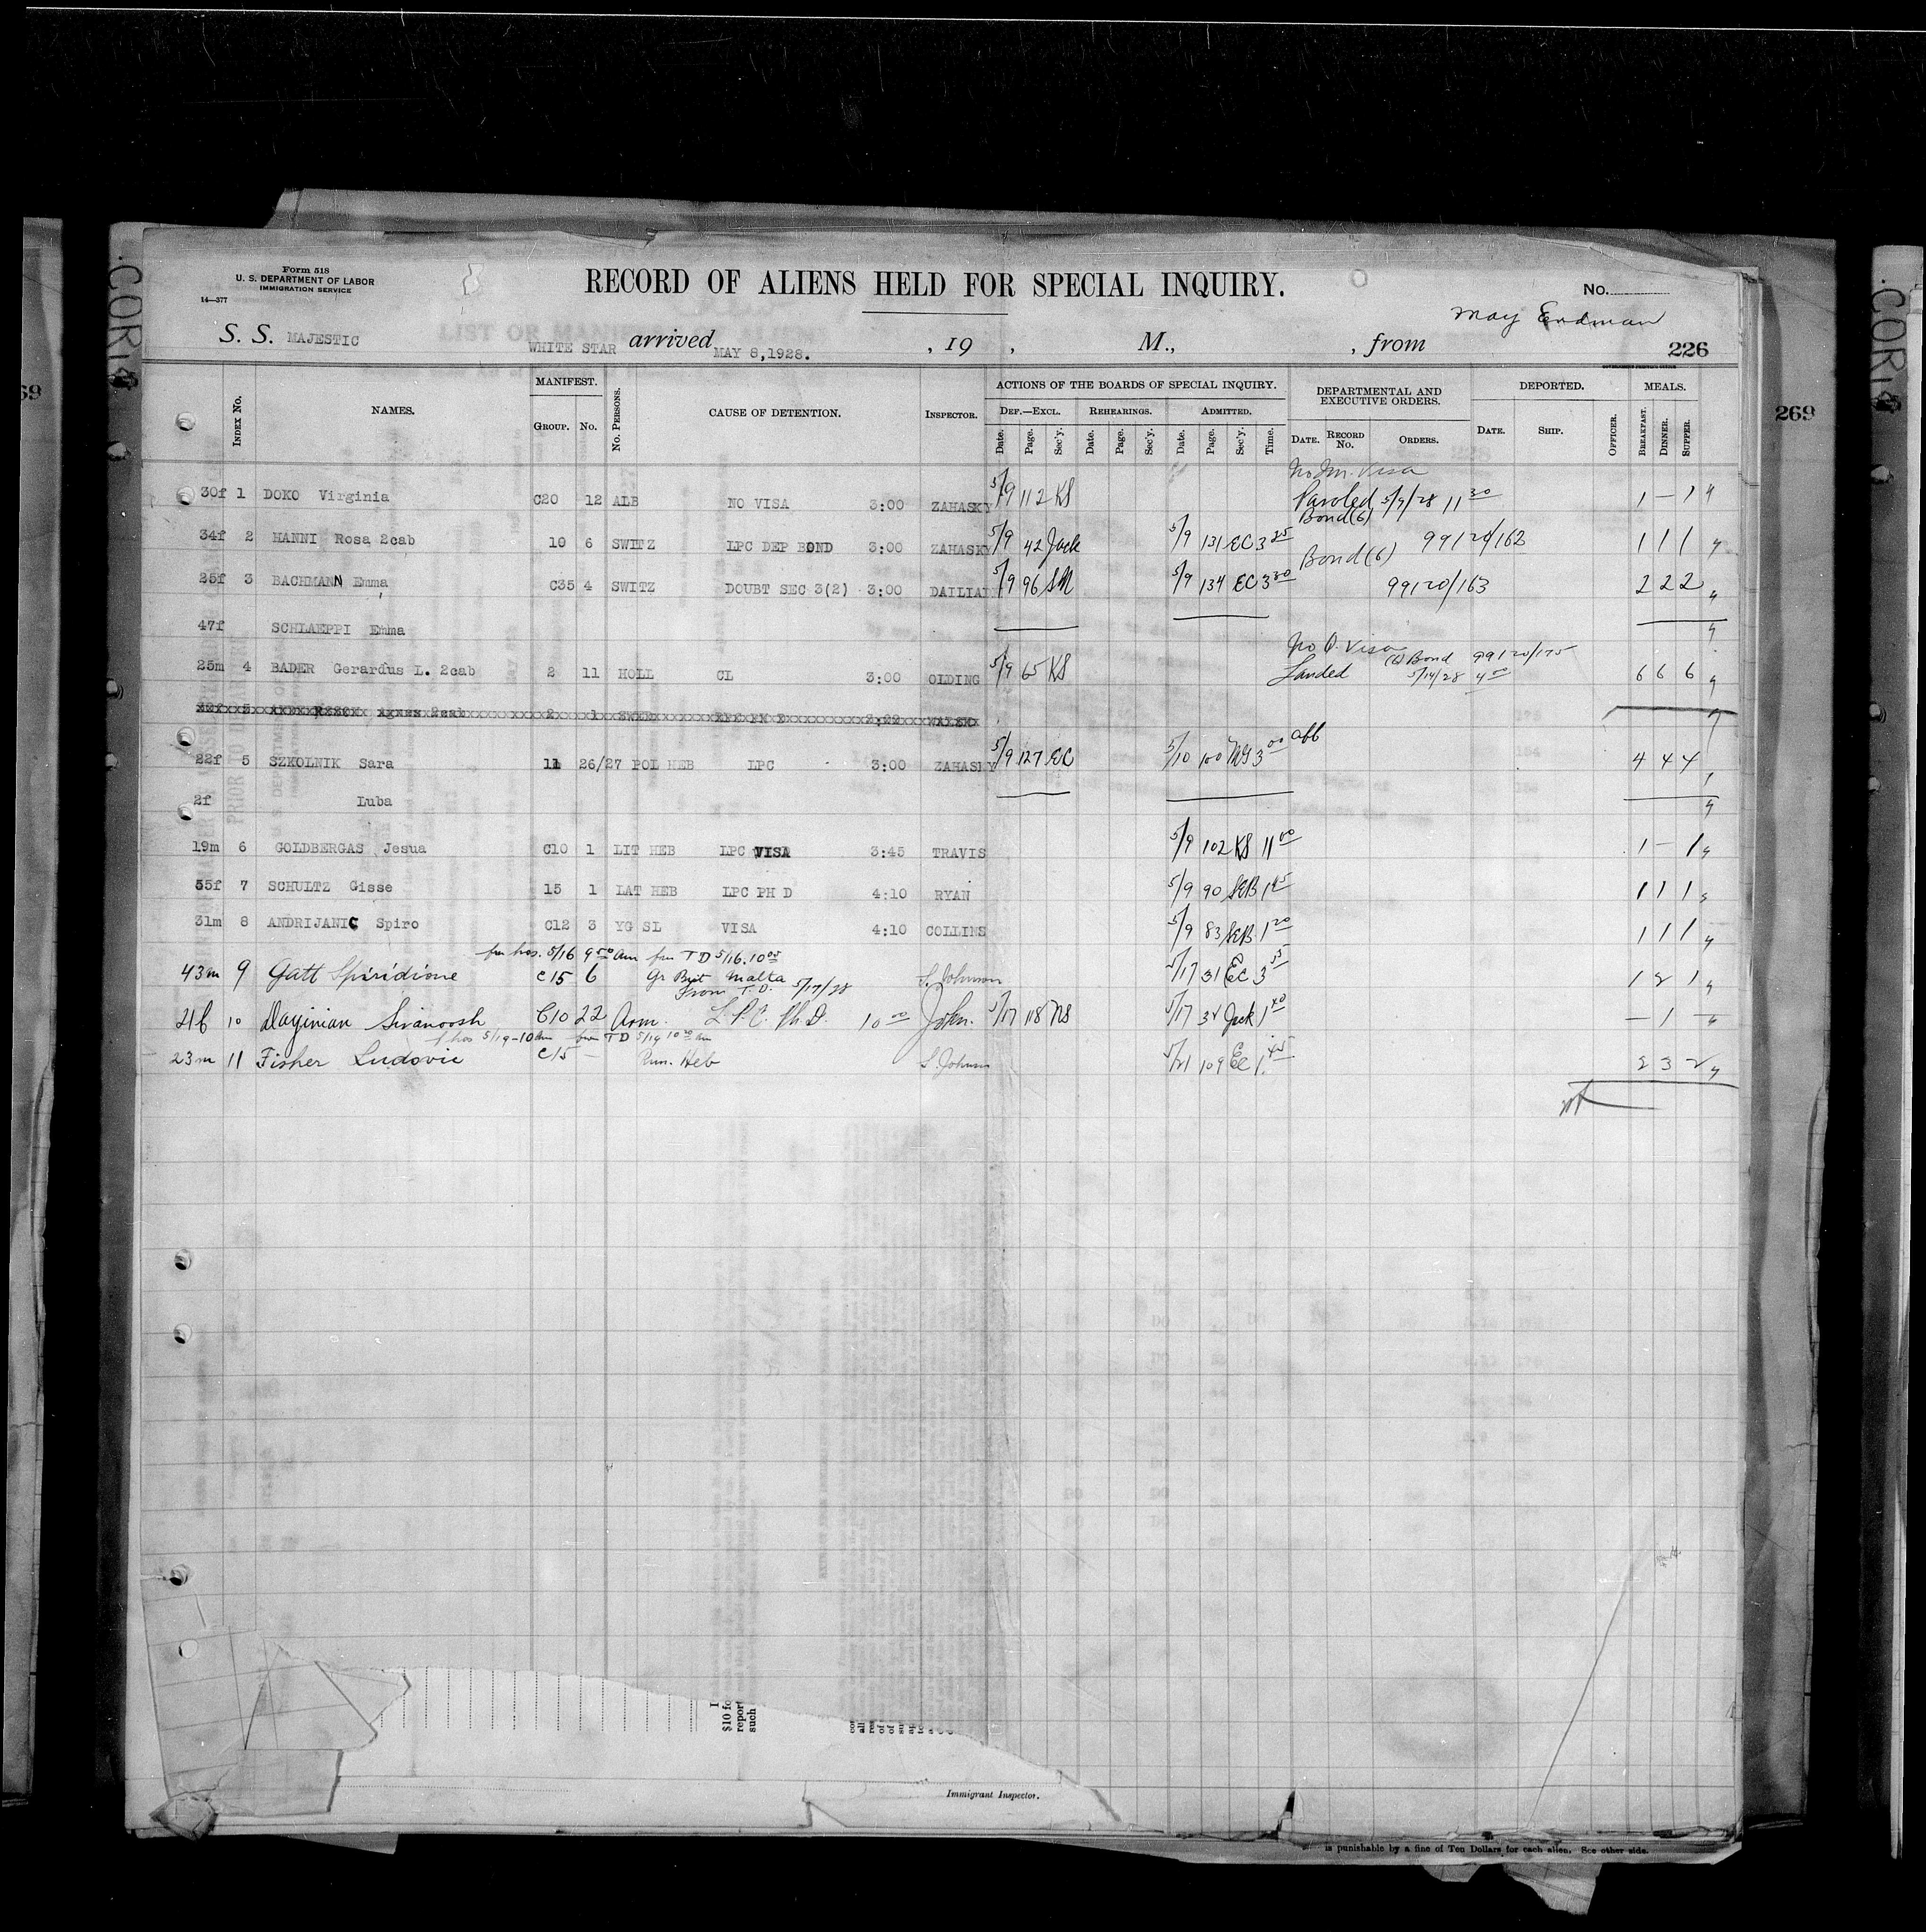 Form 518
U. S. DEPARTMENT OF LABOR
IMMIGRATION SERVICE
14—377
RECORD OF ALIENS HELD FOR SPECIAL INQUIRY.
No.
May Erdman
S. S. MAJESTIC WHITE STAR arrived MAY 8,1928. , 19 , M., , from
226
269
69
INDEX No. NAMES. MANIFEST. GROUP. No. No. PERSONS. CAUSE OF DETENTION. INSPECTOR. ACTIONS OF THE BOARDS OF SPECIAL INQUIRY. DEPARTMENTAL AND EXECUTIVE ORDERS. DEPORTED. OFFICER. MEALS.
DEF.—EXCL. REHEARINGS. ADMITTED.
Date. Page. Sec'y. Date. Page. Sec'y. Date. Page. Sec'y. Time. DATE. RECORD No. ORDERS. DATE. SHIP. BREAKFAST. DINNER. SUPPER.
No Im. Visa
30f 1 DOKO Virginia C20 12 ALB NO VISA 3:00 ZAHASKY 5/9 112 KS Paroled 5/9/28 11 30 1 — 1
Bond(6)
34f 2 HANNI Rosa 2cab 10 6 SWITZ LPC DEP BOND 3:00 ZAHASKY 5/9 42 Jack 5/9 131 EC 3 25 99120/162 1 1 1
Bond(6)
25f 3 BACHMANN Emma C35 4 SWITZ DOUBT SEC 3(2) 3:00 DAILIA 5/9 96 SM 5/9 134 EC 3 30 99120/163 2 2 2
47f SCHLAEPPI Emma
No Q. Visa
25m 4 BADER Gerardus L. 2cab 2 11 HOLL CL 3:00 OLDING 5/9 65 KS Landed (6) Bond 99120/175 5/14/28 4 00 6 6 6
22f 5 SZKOLNIK Sara 11 26/27 POL HEB LPC 3:00 ZAHASKY 5/9 127 EC 5/10 100 MG 3 00 aff 4 4 4
2f Luba
19m 6 GOLDBERGAS Jesua C10 1 LIT HEB LPC VISA 3:45 TRAVIS 5/9 102 KS 11 00 1 — 1
55f 7 SCHULTZ Gisse 15 1 LAT HEB LPC PH D 4:10 RYAN 5/9 90 SEB 1 45 1 1 1
31m 8 ANDRIJANIC Spiro C12 3 YG SL VISA 4:10 COLLINS 5/9 83 SEB 1 20 1 1 1
fm hos. 5/16 9 50 Am fm T D 5/16. 10 05
43m 9 Gatt Spiridione C15 6 Gr Brit Malta S. Johnson 5/17 31 EC 3 55 1 2 1
From T. D. 5/17/28
21f 10 Dayinian Sivanoosh C10 22 Arm. L. P. C. Ph. D. 10 00 John. 5/17 118 NS 5/17 34 Jack 1 40 — 1 —
f hos 5/19 - 10 am fm T D 5/19 10 20 am
23m 11 Fisher Ludovic C15 — Rum. Heb S. Johnson 5/21 109 EC 1 45 2 3 2
$10 fo
report
such
Immigrant Inspector.
is punishable by a fine of Ten Dollars for each alien. See other side.